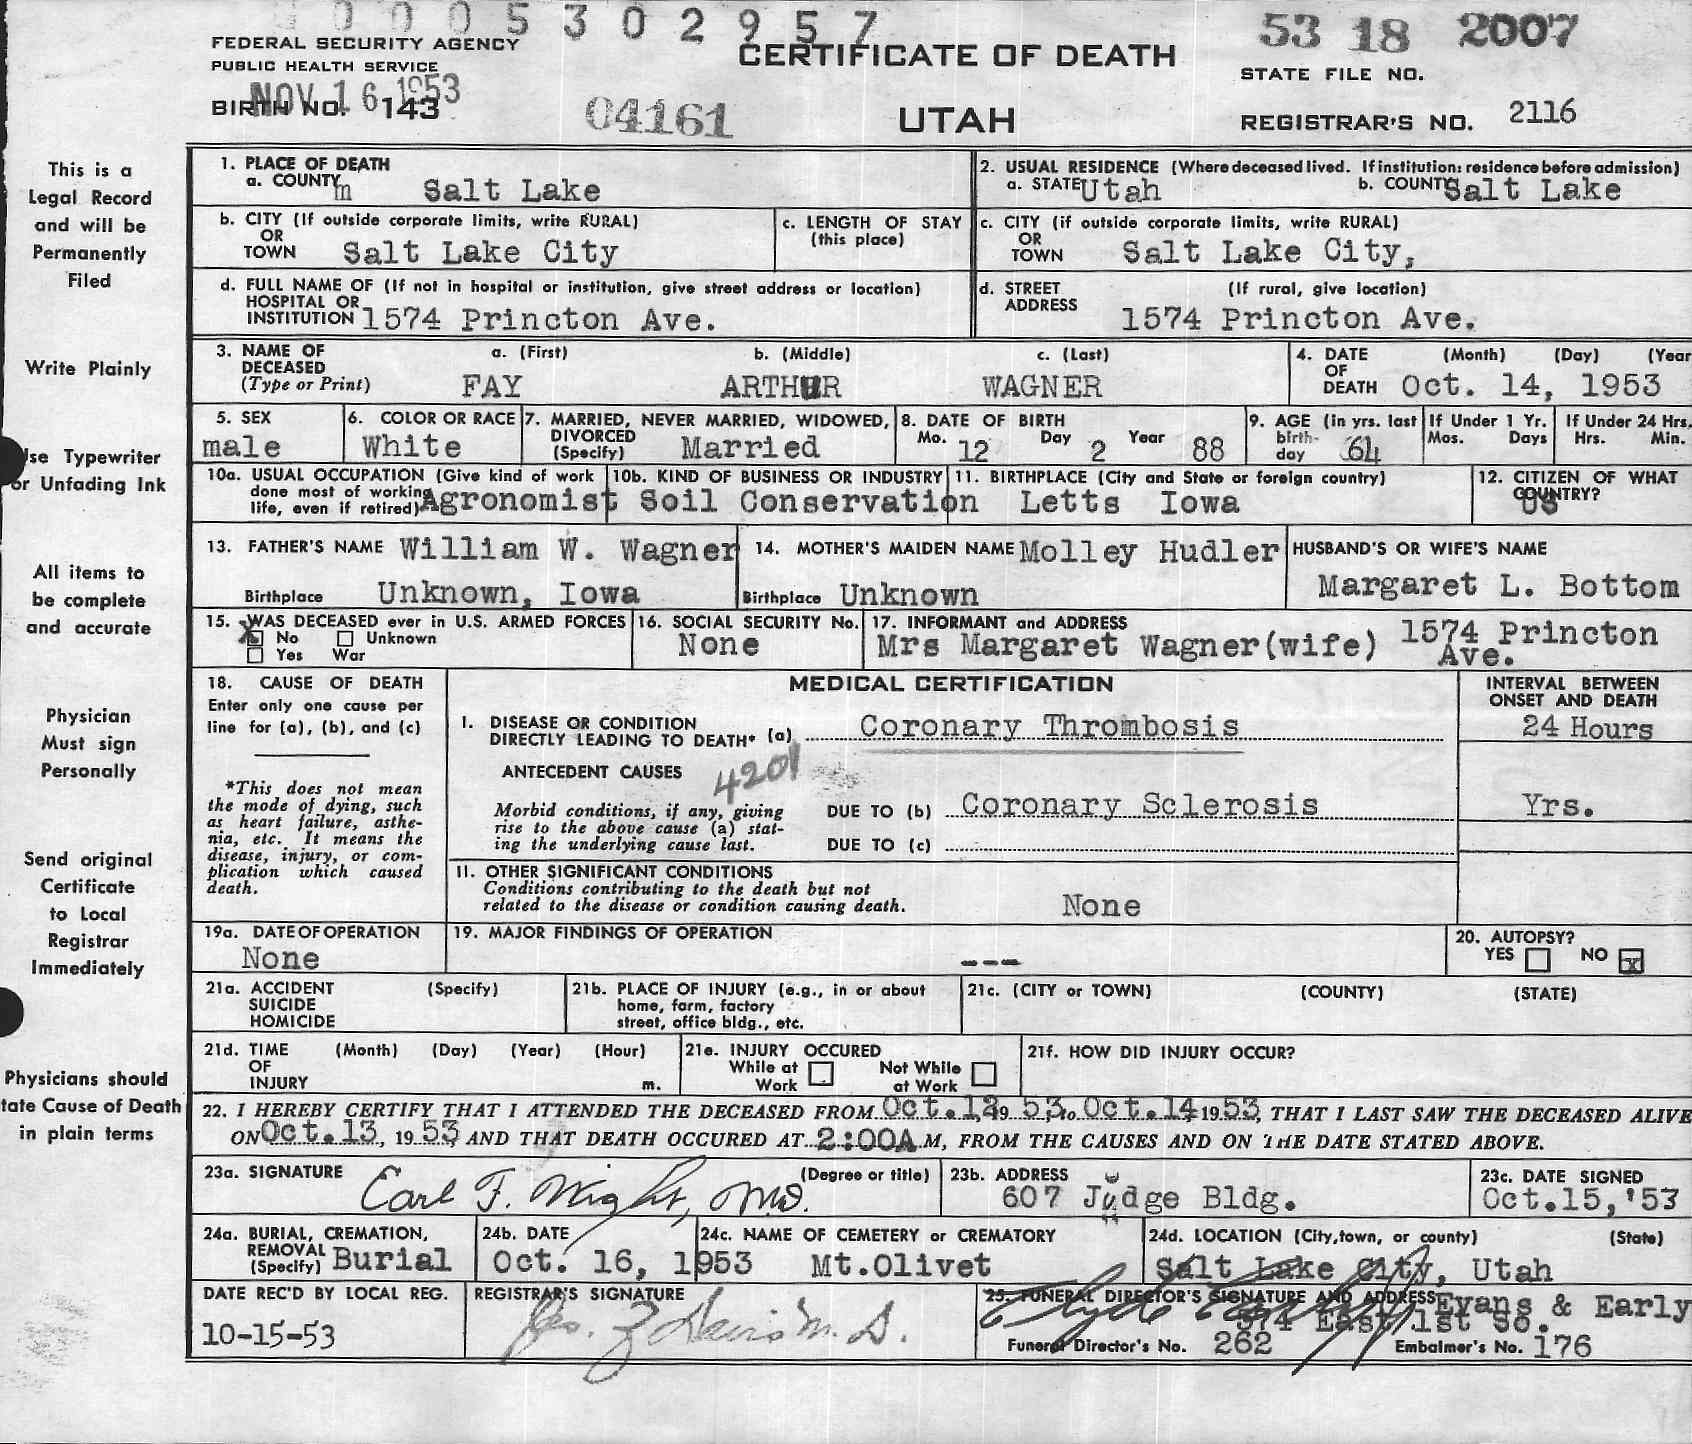 0005302957
FEDERAL SECURITY AGENCY
PUBLIC HEALTH SERVICE
CERTIFICATE OF DEATH
53 18 2007
STATE FILE NO.
NOV 16 1953
BIRTH NO. 143
04161
UTAH
REGISTRAR'S NO. 2116
This is a
Legal Record
and will be
Permanently
Filed
Write Plainly
se Typewriter
or Unfading Ink
All items to
be complete
and accurate
Physician
Must sign
Personally
Send original
Certificate
to Local
Registrar
Immediately
Physicians should
tate Cause of Death
in plain terms
1. PLACE OF DEATH
a. COUNTY m Salt Lake
2. USUAL RESIDENCE (Where deceased lived. If institution: residence before admission)
a. STATE Utah b. COUNTY Salt Lake
b. CITY (If outside corporate limits, write RURAL)
OR
TOWN Salt Lake City
c. LENGTH OF STAY
(this place)
c. CITY (if outside corporate limits, write RURAL)
OR
TOWN Salt Lake City,
d. FULL NAME OF (If not in hospital or institution, give street address or location)
HOSPITAL OR
INSTITUTION 1574 Princton Ave.
d. STREET (If rural, give location)
ADDRESS
1574 Princton Ave.
3. NAME OF a. (First) b. (Middle) c. (Last)
DECEASED
(Type or Print) FAY ARTHUR WAGNER
4. DATE (Month) (Day) (Year
OF
DEATH Oct. 14, 1953
5. SEX
male
6. COLOR OR RACE
White
7. MARRIED, NEVER MARRIED, WIDOWED,
DIVORCED
(Specify) Married
8. DATE OF BIRTH
Mo. 12 Day 2 Year 88
9. AGE (in yrs. last
birth-
day 64
If Under 1 Yr.
Mos. Days
If Under 24 Hrs.
Hrs. Min.
10a. USUAL OCCUPATION (Give kind of work
done most of working
life, even if retired) Agronomist
10b. KIND OF BUSINESS OR INDUSTRY
Soil Conservation
11. BIRTHPLACE (City and State or foreign country)
Letts Iowa
12. CITIZEN OF WHAT
COUNTRY?
US
13. FATHER'S NAME William W. Wagner
Birthplace Unknown, Iowa
14. MOTHER'S MAIDEN NAME Molley Hudler
Birthplace Unknown
HUSBAND'S OR WIFE'S NAME
Margaret L. Bottom
15. WAS DECEASED ever in U.S. ARMED FORCES
X No Unknown
Yes War
16. SOCIAL SECURITY No.
None
17. INFORMANT and ADDRESS
Mrs Margaret Wagner(wife) 1574 Princton
Ave.
18. CAUSE OF DEATH
Enter only one cause per
line for (a), (b), and (c)
*This does not mean
the mode of dying, such
as heart failure, asthe-
nia, etc. It means the
disease, injury, or com-
plication which caused
death.
MEDICAL CERTIFICATION
INTERVAL BETWEEN
ONSET AND DEATH
I. DISEASE OR CONDITION
DIRECTLY LEADING TO DEATH* (a) Coronary Thrombosis
24 Hours
ANTECEDENT CAUSES
4201
Morbid conditions, if any, giving
rise to the above cause (a) stat-
ing the underlying cause last.
DUE TO (b) Coronary Sclerosis
Yrs.
DUE TO (c)
II. OTHER SIGNIFICANT CONDITIONS
Conditions contributing to the death but not
related to the disease or condition causing death.
None
19a. DATE OF OPERATION
None
19. MAJOR FINDINGS OF OPERATION
---
20. AUTOPSY?
YES NO x
21a. ACCIDENT (Specify)
SUICIDE
HOMICIDE
21b. PLACE OF INJURY (e.g., in or about
home, farm, factory
street, office bldg., etc.
21c. (CITY or TOWN) (COUNTY) (STATE)
21d. TIME (Month) (Day) (Year) (Hour)
OF
INJURY m.
21e. INJURY OCCURED
While at Not While
Work at Work
21f. HOW DID INJURY OCCUR?
22. I HEREBY CERTIFY THAT I ATTENDED THE DECEASED FROM Oct.12 19 53, to Oct.14, 1953, THAT I LAST SAW THE DECEASED ALIVE
ON Oct.13, 1953 AND THAT DEATH OCCURED AT 2:00A M, FROM THE CAUSES AND ON THE DATE STATED ABOVE.
23a. SIGNATURE (Degree or title)
Carl F. Wight, MD.
23b. ADDRESS
607 Judge Bldg.
23c. DATE SIGNED
Oct.15,'53
24a. BURIAL, CREMATION,
REMOVAL
(Specify) Burial
24b. DATE
Oct. 16, 1953
24c. NAME OF CEMETERY or CREMATORY
Mt.Olivet
24d. LOCATION (City, town, or county) (State)
Salt Lake City, Utah
DATE REC'D BY LOCAL REG.
10-15-53
REGISTRAR'S SIGNATURE
25. FUNERAL DIRECTOR'S SIGNATURE AND ADDRESS Evans & Early
574 East 1st So.
Funeral Director's No. 262 Embalmer's No. 176